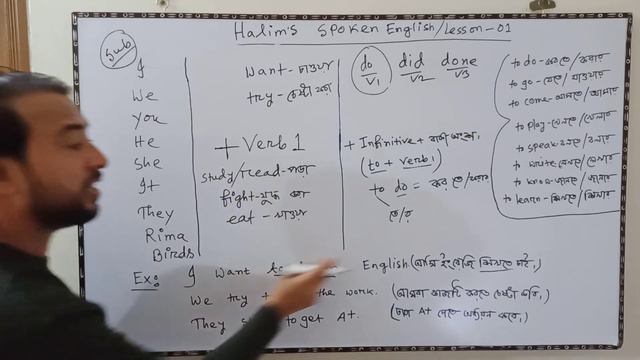 Halim's Spoken English/Lesson-01
Sub
I
We
You
He
She
It
They
Rima
Birds
Want - চাওয়া
try - চেষ্টা করা
+ Verb 1
study/read - পড়া
fight - যুদ্ধ করা
eat - খাওয়া
do did done
V1 V2 V3
+ Infinitive + বাকী অংশ,
(to + verb1)
to do = করতে/করার
তে/র
to do - করতে/করার
to go - যেতে/যাওয়ার
to come - আসতে/আসার
to play - খেলতে/খেলার
to speak - বলতে/বলার
to write - লেখতে/লেখার
to know - জানতে/জানার
to learn - শিখতে/শিখার
Ex: I want to English (আমি ইংরেজি শিখতে চাই।)
We try the work. (আমরা কাজটি করতে চেষ্টা করি।)
They to get A+. (তারা A+ পেতে করে।)